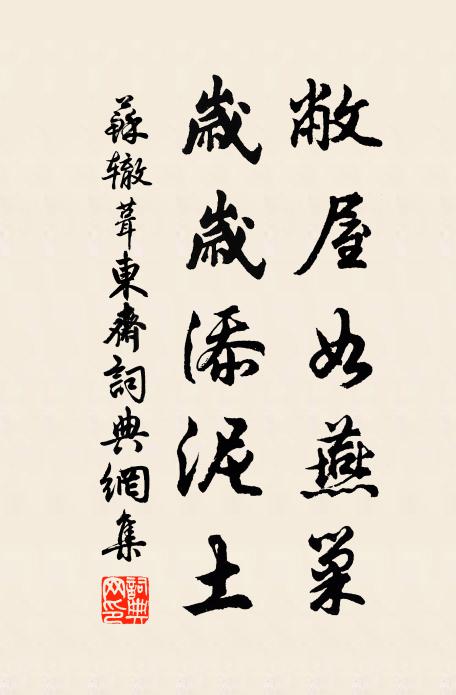 敝屋如燕巢
歲歲添泥土
蘇轍葺東齋詞典網集
詞典網印